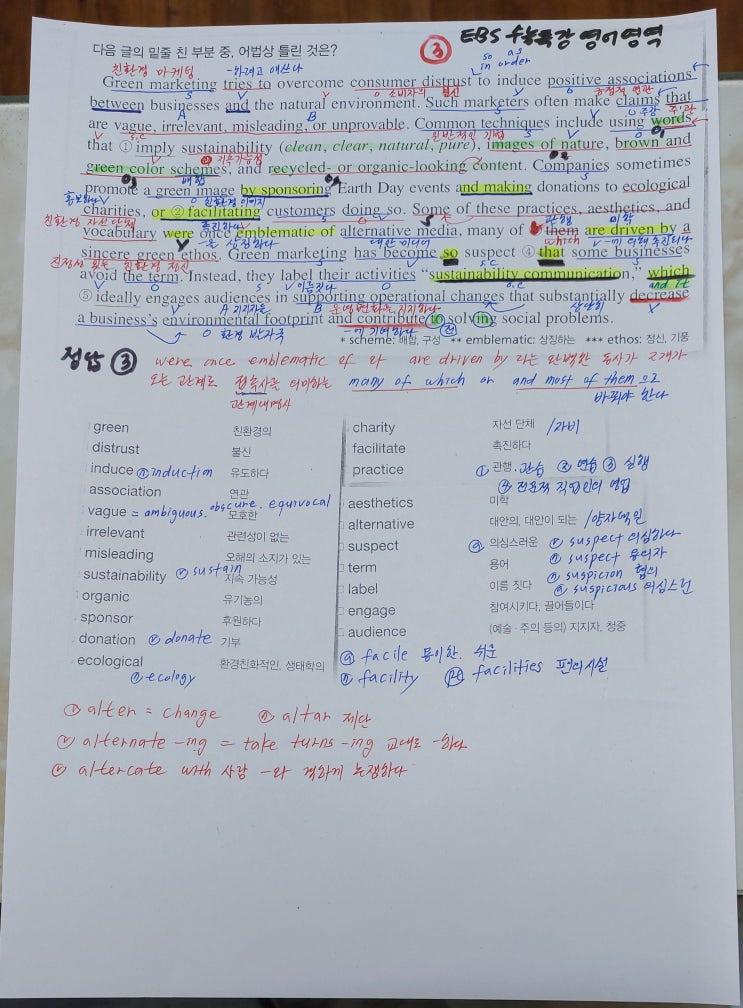 EBS 수능특강 영어영역
다음 글의 밑줄 친 부분 중, 어법상 틀린 것은? ③
so as
in order
친환경 마케팅 -하려고 애쓰다
Green marketing tries to overcome consumer distrust to induce positive associations
S V O 소비자의 불신 V O 긍정적 연관
between businesses and the natural environment. Such marketers often make claims that
A B S V O 주장 주·관
are vague, irrelevant, misleading, or unprovable. Common techniques include using words
V S.C 일반적인 기법 S V O
that ① imply sustainability (clean, clear, natural, pure), images of nature, brown and
V 지속가능성
green color schemes, and recycled- or organic-looking content. Companies sometimes
배합 S
promote a green image by sponsoring Earth Day events and making donations to ecological
홍보하다 V O 친환경 이미지
charities, or ② facilitating customers doing so. Some of these practices, aesthetics, and
친환경 자선단체 촉진하다 S 관행 미학
vocabulary were once emblematic of alternative media, many of ③ them are driven by a
V -을 상징하다 대안 미디어 which V -에 의해 추진되다
sincere green ethos. Green marketing has become so suspect ④ that some businesses
진정성 있는 친환경 정신 S V S.C S
avoid the term. Instead, they label their activities “sustainability communication,” which
V O S V 이름짓다 O O.C and it
⑤ ideally engages audiences in supporting operational changes that substantially decrease
V O A 지지하는 B 운영변화를 지지하다 상당히 X
a business’s environmental footprint and contribute to solving social problems.
O 환경 발자국 -에 기여하다 전
* scheme: 배합, 구성 ** emblematic: 상징하는 *** ethos: 정신, 기풍
정답 ③ were once emblematic of 와 are driven by 라는 완벽한 동사가 2개가
오는 관계로 접속사를 의미하는 many of which or and most of them으로
관계대명사 바꿔야 한다
green 친환경의
distrust 불신
induce ⓝ induction 유도하다
association 연관
vague = ambiguous. obscure. equivocal 모호한
irrelevant 관련성이 없는
misleading 오해의 소지가 있는
sustainability ⓥ sustain 지속 가능성
organic 유기농의
sponsor 후원하다
donation ⓥ donate 기부
ecological 환경친화적인, 생태학의
ⓝ ecology
charity 자선 단체 /자비
facilitate 촉진하다
practice ① 관행. 관습 ② 연습 ③ 실행
④ 전문적 직업인의 영업
aesthetics 미학
alternative 대안의, 대안이 되는 /양자택일
suspect ⓐ 의심스러운 ⓥ suspect 의심하다
ⓝ suspect 용의자
term 용어 ⓝ suspicion 혐의
label 이름 짓다 ⓐ suspicious 의심스런
engage 참여시키다, 끌어들이다
audience (예술·주의 등의) 지지자, 청중
ⓐ facile 용이한. 쉬운
ⓝ facility facilities 편의시설
ⓥ alter = change ⓝ altar 제단
ⓥ alternate -ing = take turns -ing 교대로 -하다
ⓥ altercate with 사람 -와 격하게 논쟁하다